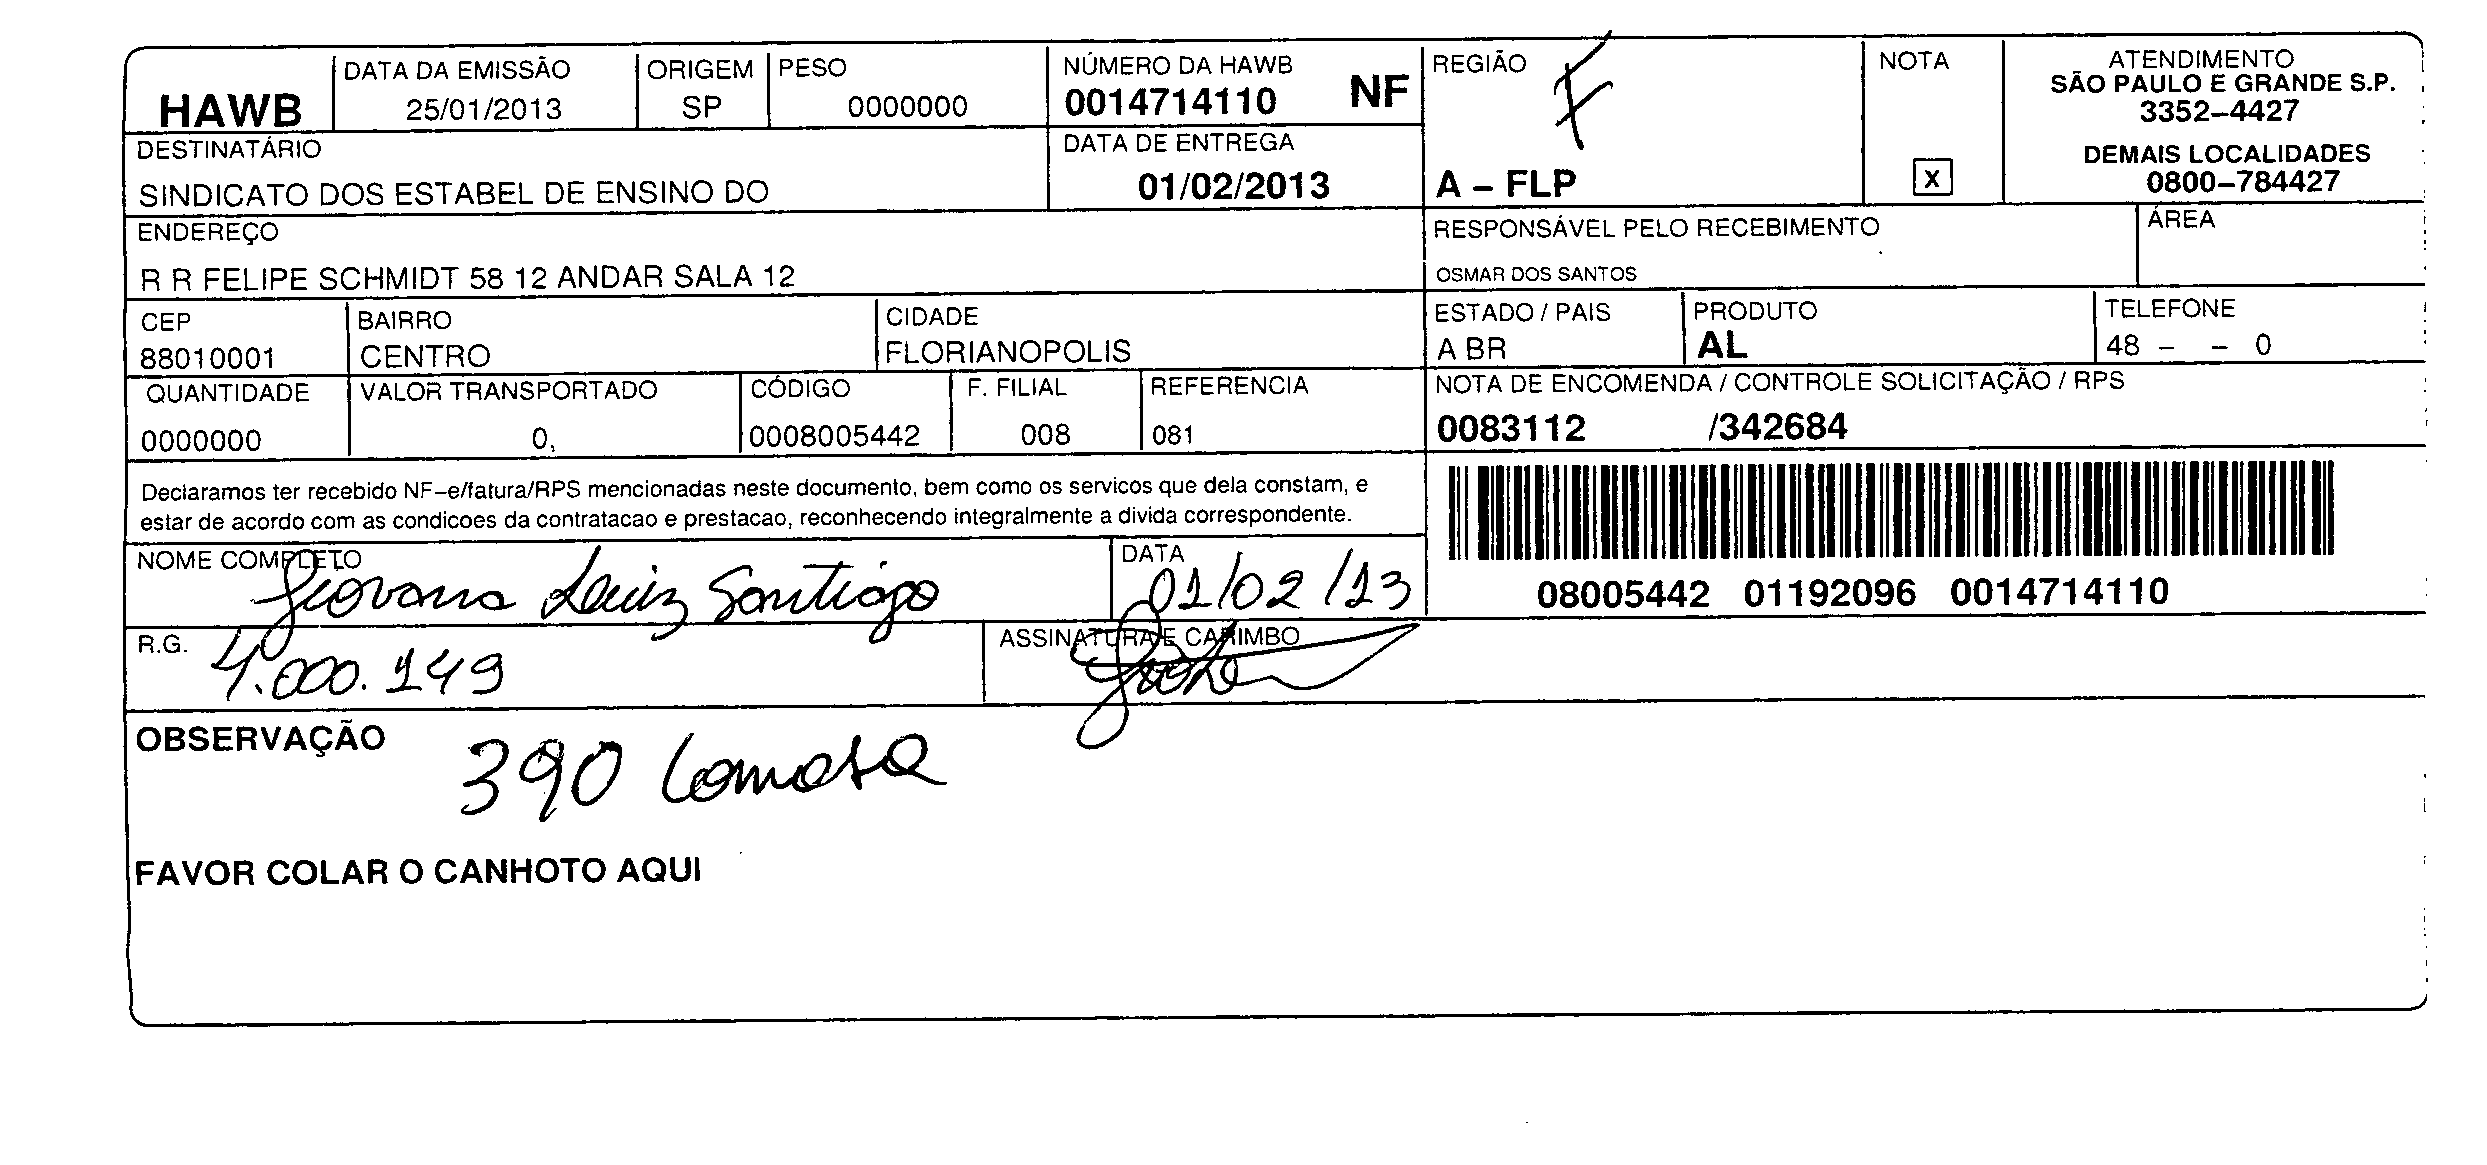 HAWB
DATA DA EMISSÃO
25/01/2013
ORIGEM
SP
PESO
0000000
NÚMERO DA HAWB
0014714110 NF
REGIÃO
A – FLP
NOTA
X
ATENDIMENTO
SÃO PAULO E GRANDE S.P.
3352–4427
DEMAIS LOCALIDADES
0800–784427
DESTINATÁRIO
SINDICATO DOS ESTABEL DE ENSINO DO
DATA DE ENTREGA
01/02/2013
ENDEREÇO
R R FELIPE SCHMIDT 58 12 ANDAR SALA 12
RESPONSÁVEL PELO RECEBIMENTO
OSMAR DOS SANTOS
ÁREA
CEP
88010001
BAIRRO
CENTRO
CIDADE
FLORIANOPOLIS
ESTADO / PAIS
A BR
PRODUTO
AL
TELEFONE
48 – – 0
QUANTIDADE
0000000
VALOR TRANSPORTADO
0,
CÓDIGO
0008005442
F. FILIAL
008
REFERENCIA
081
NOTA DE ENCOMENDA / CONTROLE SOLICITAÇÃO / RPS
0083112 /342684
Declaramos ter recebido NF–e/fatura/RPS mencionadas neste documento, bem como os servicos que dela constam, e
estar de acordo com as condicoes da contratacao e prestacao, reconhecendo integralmente a divida correspondente.
08005442 01192096 0014714110
NOME COMPLETO
Giovana Luiz Santiago
DATA
01/02/13
R.G.
4.000.149
ASSINATURA E CARIMBO
OBSERVAÇÃO
390
FAVOR COLAR O CANHOTO AQUI